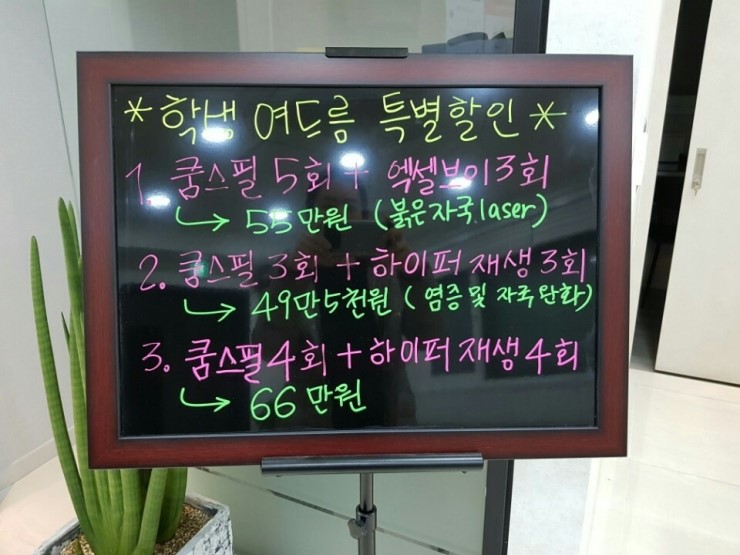 *학생 여드름 특별할인*
1. 쿰스필 5회 + 엑셀브이 3회
↳ 55만원 (붉은자국 laser)
2. 쿰스필 3회 + 하이퍼 재생 3회
↳ 49만5천원 (염증 및 자국 완화)
3. 쿰스필 4회 + 하이퍼 재생 4회
↳ 66만원